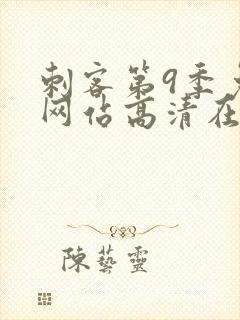 刺客第9季
网佔高清在
陳藝靈